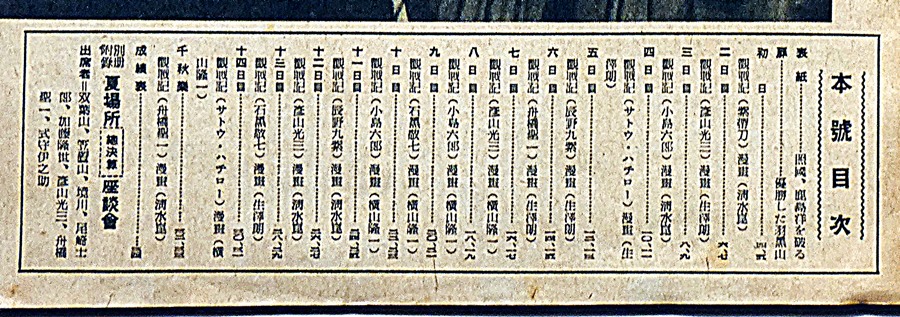 本號目次
表紙…………照國、鹿島洋を破る
扉…………優勝した羽黒山
初日…………四・五
觀戰記(紫檀刀)漫畫(清水崑)
二日目…………六・七
觀戰記(彦山光三)漫畫(生澤朗)
三日目…………八・九
觀戰記(小島六郎)漫畫(清水崑)
四日目…………一〇・一一
觀戰記(サトウ・ハチロー)漫畫(生
澤朗)
五日目…………
觀戰記(辰野九紫)漫畫(生澤朗)
六日目…………
觀戰記(舟橋聖一)漫畫(生澤朗)
七日目…………一六・一七
觀戰記(彦山光三)漫畫(横山隆一)
八日目…………一八・一九
觀戰記(小島六郎)漫畫(横山隆一)
九日目…………
觀戰記(石黒敬七)漫畫(横山隆一)
十日目…………
觀戰記(小島六郎)漫畫(横山隆一)
十一日目…………
觀戰記(辰野九紫)漫畫(清水崑)
十二日目…………
觀戰記(彦山光三)漫畫(清水崑)
十三日目…………
觀戰記(石黒敬七)漫畫(生澤朗)
十四日目…………
觀戰記(サトウ・ハチロー)漫畫(横
山隆一)
千秋樂…………
觀戰記(舟橋聖一)漫畫(清水崑)
成績表…………
別册附錄 夏場所 總決算 座談會
出席者=双葉山、笠置山、增川、尾崎士
郎、加藤隆世、彦山光三、舟橋
聖一、式守伊之助